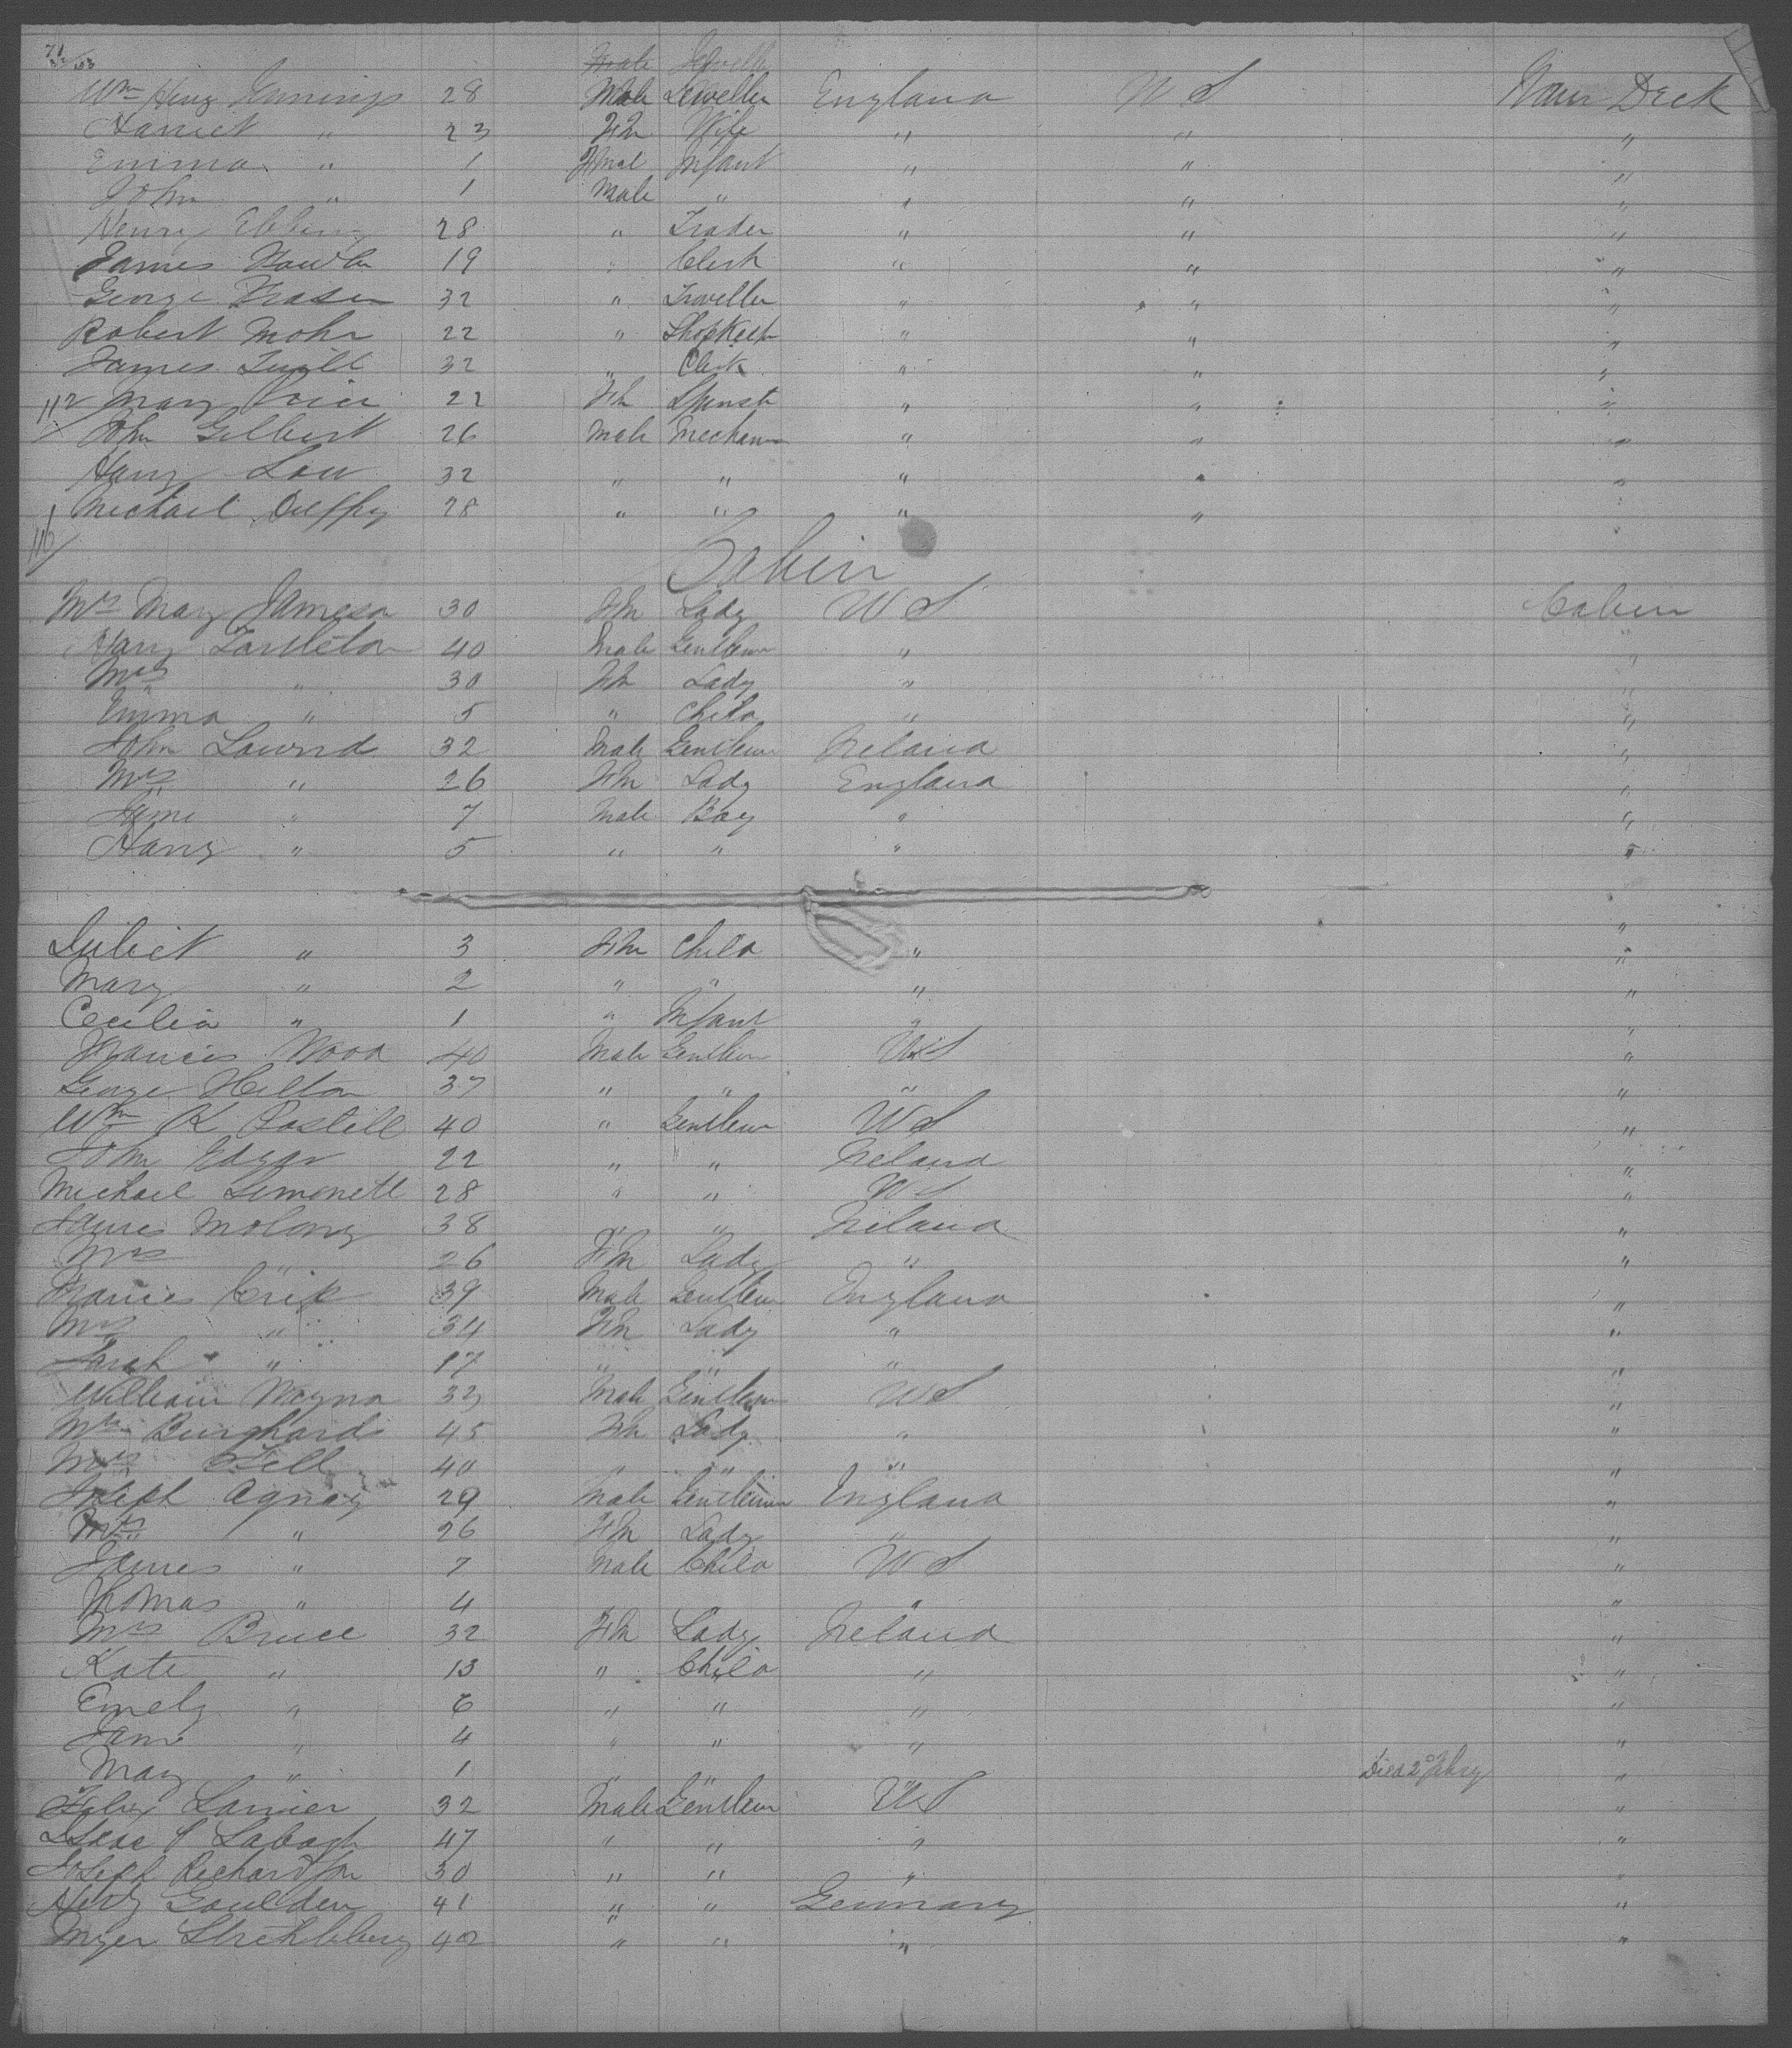 Male Jeweller
Wm Henry Jennings 28 Male Jeweller England U S Main Deck
Harriet " 23 Fem Wife " " "
Emma " 1 Fmal Infant " " "
John " 1 Male " " " "
Henry Ebbing 28 " Trader " " "
James Fowler 19 " Clerk " " "
George Fraser 32 " Traveller " " "
Robert Mohr 22 " Shopkeep " " "
James 32 " Clerk " " "
112 Mary Price 22 Fem Spinst " " "
John Gilbert 26 Male Mechan " " "
Harry Low 32 " " " " "
Michael Duffy 28 " " " "
116
Cabin
Mrs Mary Jameson 30 Fem Lady U S Cabin
Harry Tarleton 40 Male Gentlem " "
Mrs " 30 Fem Lady " "
Emma " 5 " Child " "
John Lownd 32 Male Gentlem Ireland "
Mrs " 26 Fem Lady England "
" 7 Male Boy " "
Harry " 5 " " " "
"
Juliet " 3 Fem Child " "
Mary " 2 " " " "
Cecilia " 1 " Infant " "
Francis Wood 40 Male Gentlem U S "
George Helton 37 " " " "
Wm K Postell 40 " Gentlem U S "
John Edgar 22 " " Ireland "
Michael Simonett 28 " " U S "
James Molony 38 " " Ireland "
Mrs " 26 Fem Lady " "
Francis Crip 39 Male Gentlem England "
Mrs " 34 Fem Lady " "
Sarah " 17 " " " "
William Wagna 33 Male Gentlem U S "
Mrs Burghard 45 Fem Lady " "
Mrs 40 " " " "
Joseph Agnay 29 Male Gentlemn England "
Mrs " 26 Fem Lady " "
James " 7 Male Child U S "
Thomas " 4 " " " "
Mrs Bruce 32 Fem Lady Ireland "
Kate " 13 " Child " "
Emely " 6 " " " "
Jane " 4 " " " "
Mary " 1 " " " Died "
Felix Lanier 32 Male Gentlem U S "
Isaac P Labagh 47 " " " "
Joseph Richardson 30 " " " "
Goulden 41 " " Germany "
Myer 42 " " " "